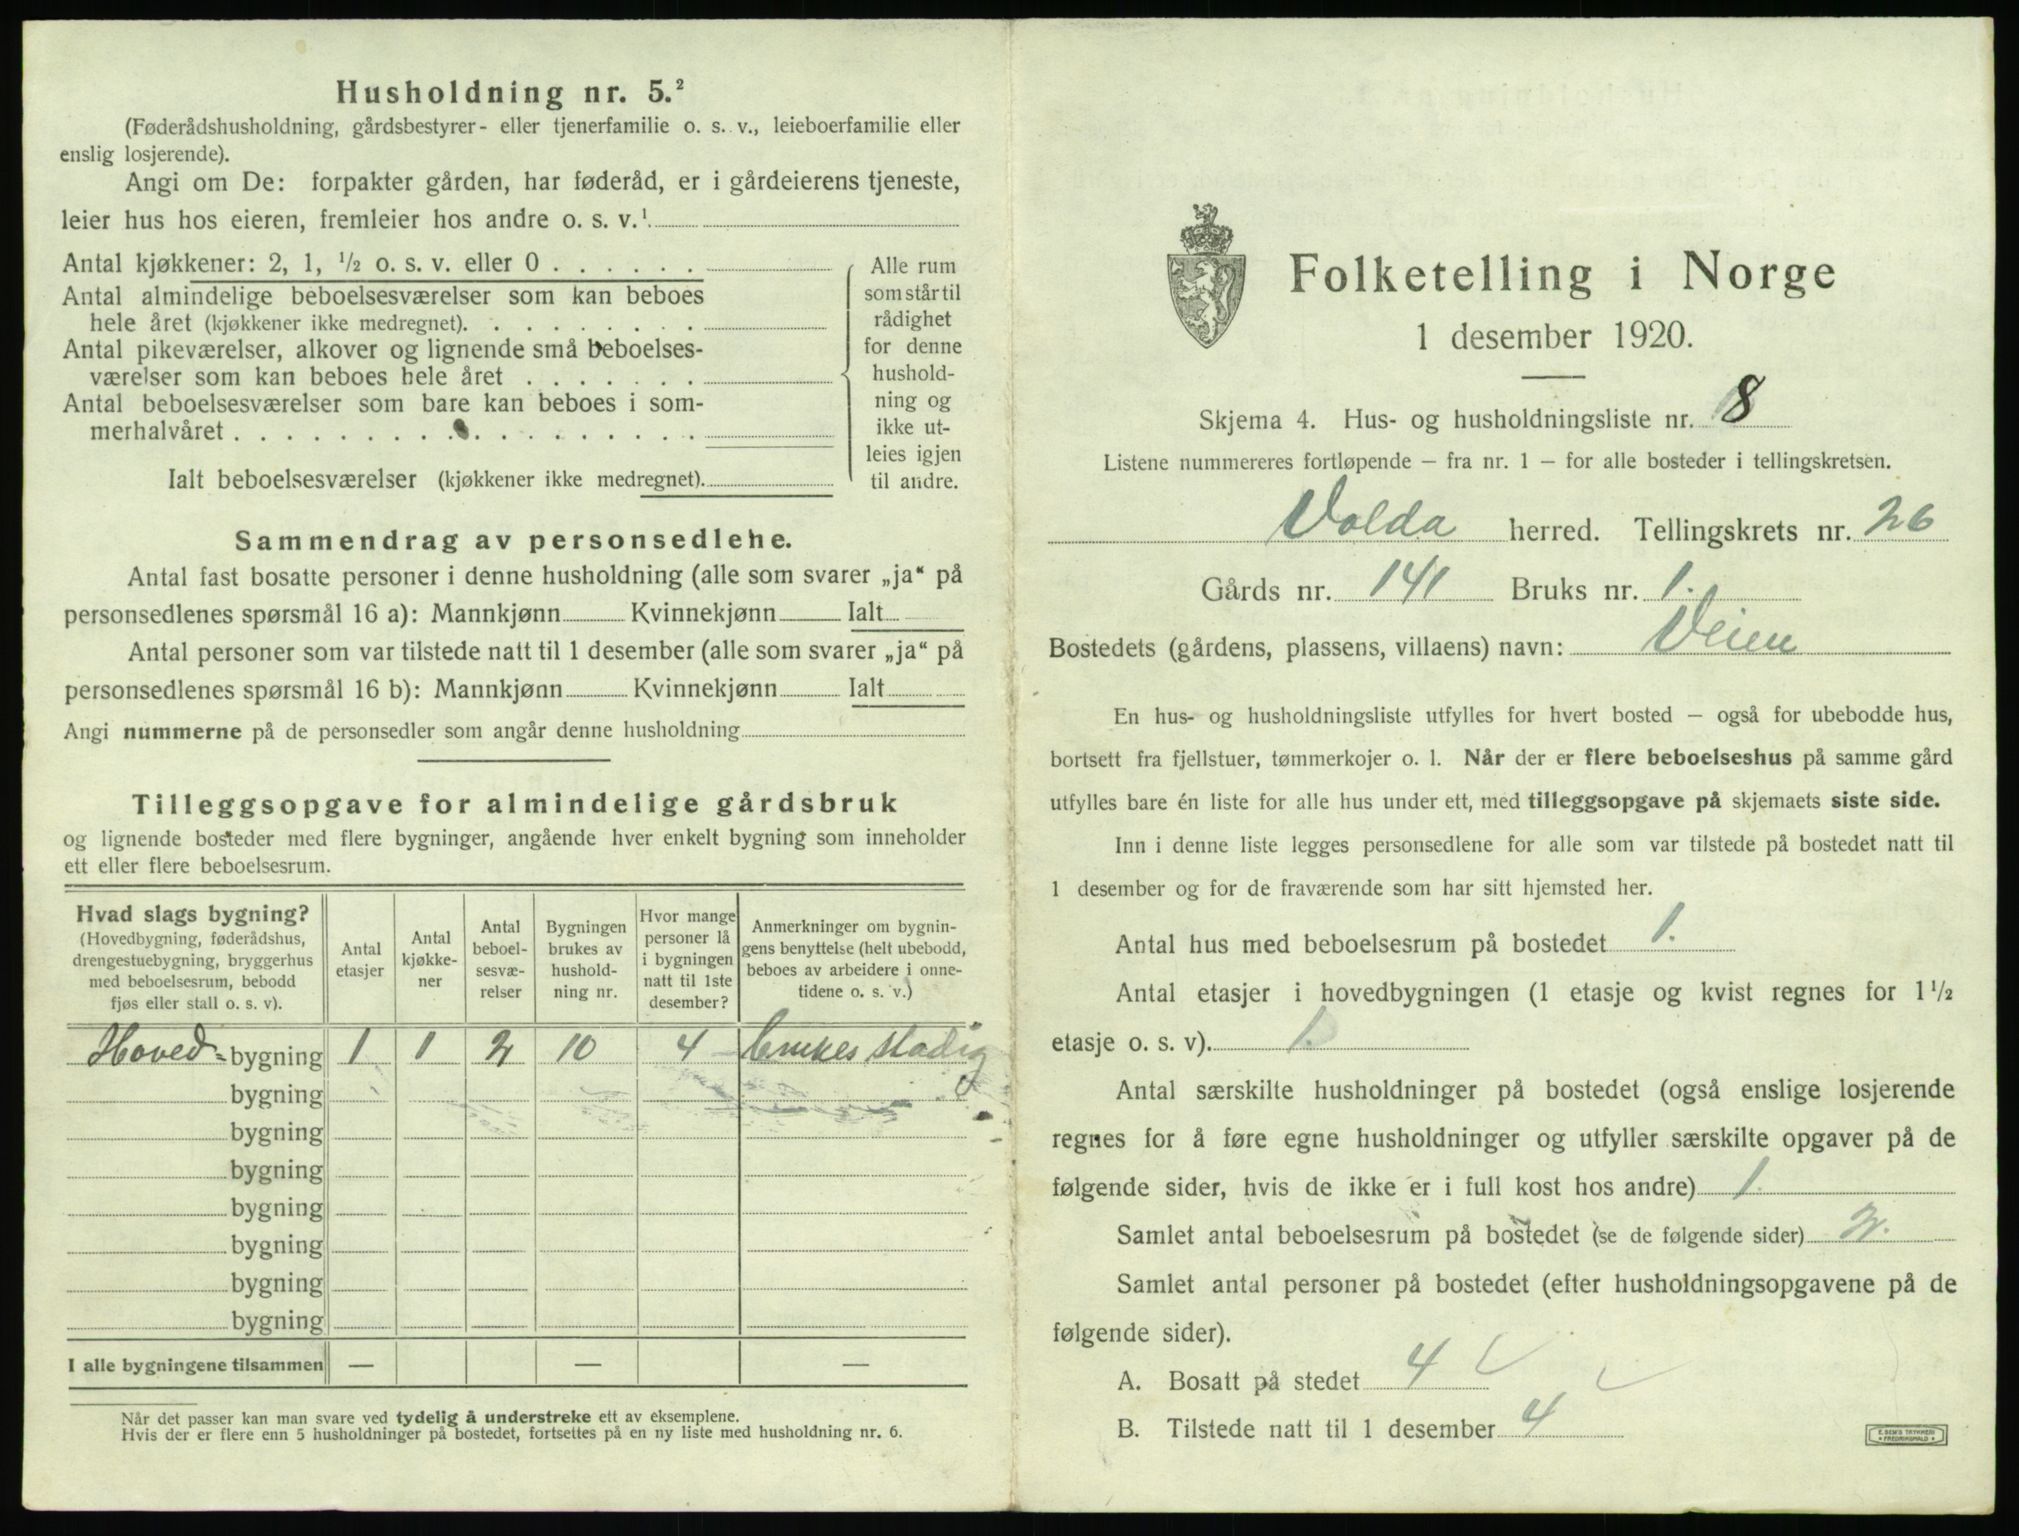 Husholdning nr. 5.²
(Føderådshusholdning, gårdsbestyrer- eller tjenerfamilie o. s. v., leieboerfamilie eller
enslig losjerende).
Angi om De: forpakter gården, har føderåd, er i gårdeierens tjeneste,
leier hus hos eieren, fremleier hos andre o. s. v.¹
Antal kjøkkener: 2, 1, ½ o. s. v. eller 0 . . . . . .
Antal almindelige beboelsesværelser som kan beboes
hele året (kjøkkener ikke medregnet). . . . . . . . .
Antal pikeværelser, alkover og lignende små beboelses-
værelser som kan beboes hele året . . . . . . .
Antal beboelsesværelser som bare kan beboes i som-
merhalvåret . . . . . . . . . . . . . . . . . .
Ialt beboelsesværelser (kjøkkener ikke medregnet).
Alle rum
som står til
rådighet
for denne
hushold-
ning og
ikke ut-
leies igjen
til andre.
Sammendrag av personsedlene.
Antal fast bosatte personer i denne husholdning (alle som svarer „ja“ på
personsedlenes spørsmål 16 a): Mannkjønn Kvinnekjønn Ialt
Antal personer som var tilstede natt til 1 desember (alle som svarer „ja“ på
personsedlenes spørsmål 16 b): Mannkjønn Kvinnekjønn Ialt
Angi nummerne på de personsedler som angår denne husholdning
Tilleggsopgave for almindelige gårdsbruk
og lignende bosteder med flere bygninger, angående hver enkelt bygning som inneholder
ett eller flere beboelsesrum.
Hvad slags bygning?
(Hovedbygning, føderådshus,
drengestuebygning, bryggerhus
med beboelsesrum, bebodd
fjøs eller stall o. s. v).
Antal
etasjer
Antal
kjøkke-
ner
Antal
beboel-
sesvæ-
relser
Bygningen
brukes av
hushold-
ning nr.
Hvor mange
personer lå
i bygningen
natt til 1ste
desember?
Anmerkninger om bygnin-
gens benyttelse (helt ubebodd,
beboes av arbeidere i onne-
tidene o. s. v.)
Hoved- bygning 1 1 2 10 4 brukes stadig
bygning
bygning
bygning
bygning
bygning
bygning
bygning
I alle bygningene tilsammen — — —
Når det passer kan man svare ved tydelig å understreke ett av eksemplene.
Hvis der er flere enn 5 husholdninger på bostedet, fortsettes på en ny liste med husholdning nr. 6.
Folketelling i Norge
1 desember 1920.
Skjema 4. Hus- og husholdningsliste nr. 8
Listene nummereres fortløpende – fra nr. 1 – for alle bosteder i tellingskretsen.
Volda herred. Tellingskrets nr. 26
Gårds nr. 141 Bruks nr. 1.
Bostedets (gårdens, plassens, villaens) navn: Veien
En hus- og husholdningsliste utfylles for hvert bosted – også for ubebodde hus,
bortsett fra fjellstuer, tømmerkojer o. l. Når der er flere beboelseshus på samme gård
utfylles bare én liste for alle hus under ett, med tilleggsopgave på skjemaets siste side.
Inn i denne liste legges personsedlene for alle som var tilstede på bostedet natt til
1 desember og for de fraværende som har sitt hjemsted her.
Antal hus med beboelsesrum på bostedet 1.
Antal etasjer i hovedbygningen (1 etasje og kvist regnes for 1½
etasje o. s. v). 1.
Antal særskilte husholdninger på bostedet (også enslige losjerende
regnes for å føre egne husholdninger og utfyller særskilte opgaver på de
følgende sider, hvis de ikke er i full kost hos andre) 1.
Samlet antal beboelsesrum på bostedet (se de følgende sider) 2.
Samlet antal personer på bostedet (efter husholdningsopgavene på de
følgende sider).
A. Bosatt på stedet 4
B. Tilstede natt til 1 desember 4
E. SEM'S TRYKKERI
FREDRIKSHALD